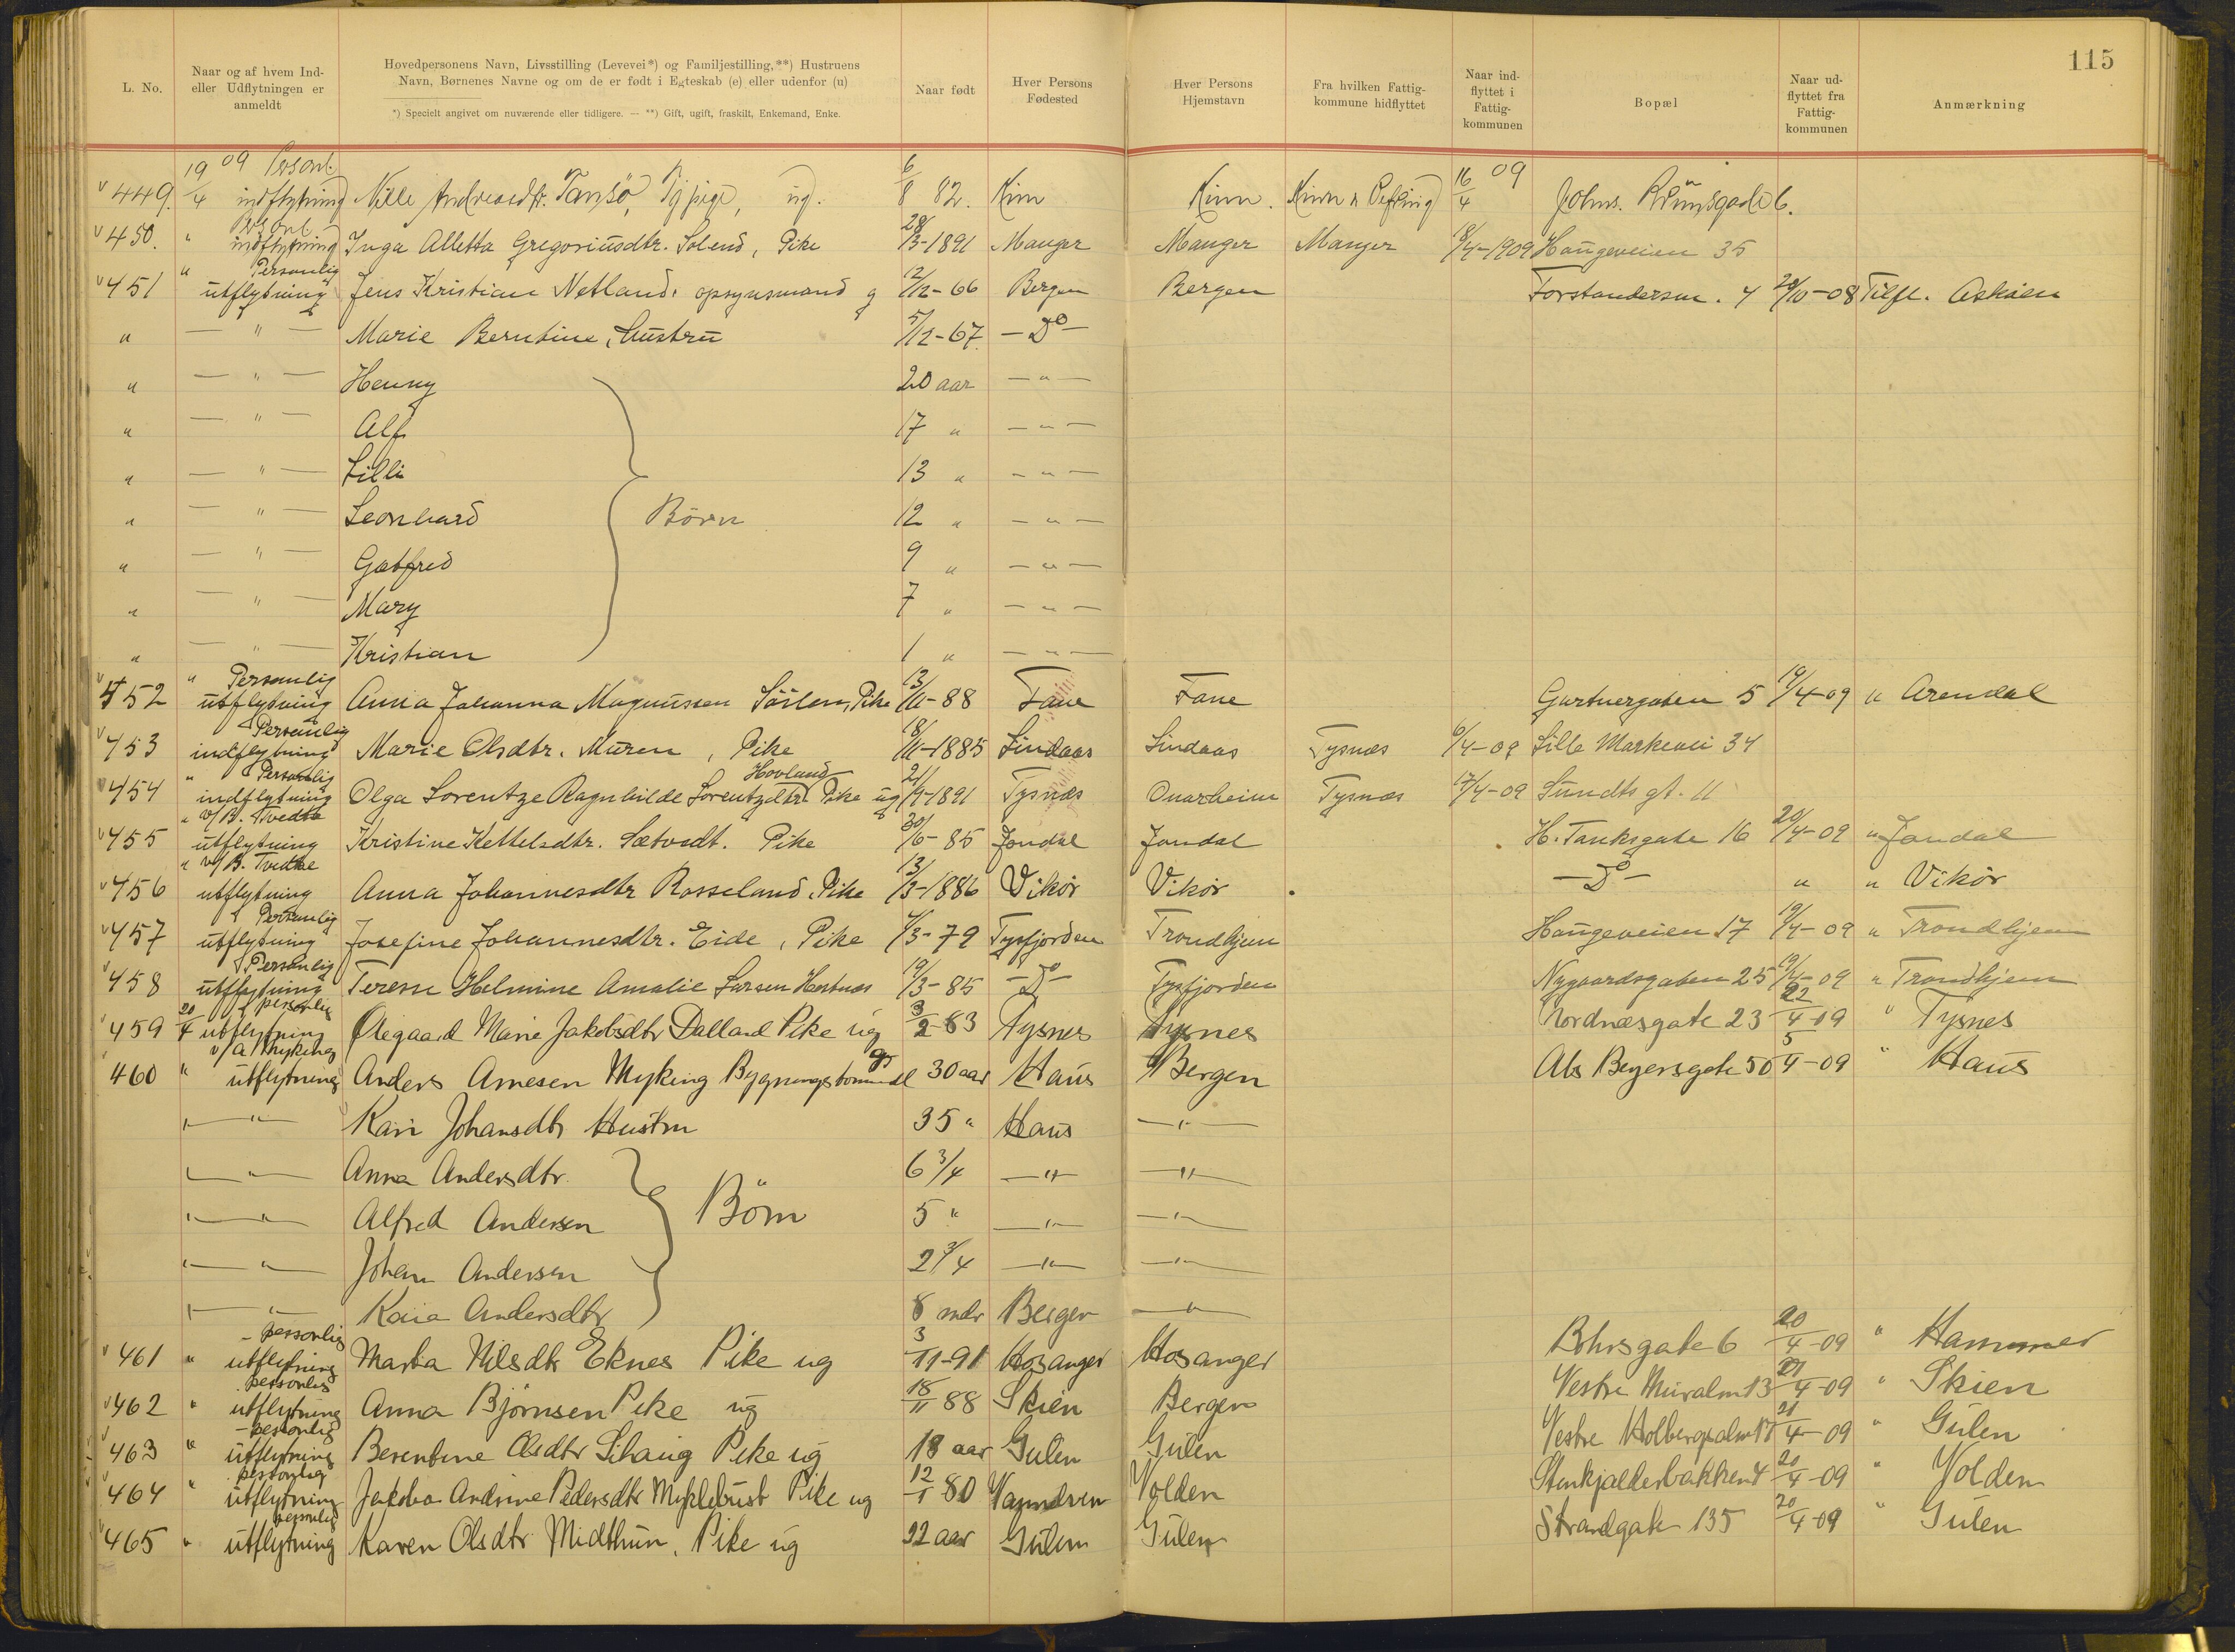 115
L. No. Naar og af hvem Ind- eller Udflytningen er anmeldt Hovedpersonens Navn, Livsstilling (Levevei*) og Familjestilling,**) Hustruens Navn, Børnenes Navne og om de er født i Egteskab (e) eller udenfor (u) Naar født Hver Persons Fødested Hver Persons Hjemstavn Fra hvilken Fattigkommune hidflyttet Naar indflyttet i Fattigkommunen Bopæl Naar udflyttet fra Fattigkommunen Anmærkning
*) Specielt angivet om nuværende eller tidligere. — **) Gift, ugift, fraskilt, Enkemand, Enke.
449. 19/4 09 Personl. indflytning Nille Andreasdtr. Tansø, Tj pige, ug. 6/8 82. Kinn Kinn. Kinn 16/4 09 Johns. 6.
450. " Personl. indflytning Inga Alletta Gregoriusdtr. Solend, Pike 28/3-1891 Manger Manger Manger 18/4-1909 Haugeveien 35
451 " Personlig utflytning Jens Kristian Netland, opsynsmand g 2/12-66 Bergen Bergen Forstandersm. 4 20/10-08 Tilfl. Askøen
" — " — Marie Berntine, Hustru 5/12-67 — Do —
" — " — Henny 20 aar — " —
" — " — Alf 17 " — " —
" — " — Lilli 13 " — " —
" — " — Leonhard Børn 12 " — " —
" — " — Gotfred 9 " — " —
" — " — Mary 7 " — " —
" — " — Kristian 1 " — " —
452 " Personlig utflytning Anna Johanna Magnussen Sörlen, Pike 13/11-88 Fane Fane Gartnergaten 5 19/4-09 " Arendal
453 Personlig indflytning Marie Olsdtr. Muren, Pike 18/11-1885 Lindaas Lindaas Tysnæs 6/4-09 Lille Markevei 34
454 " Personlig indflytning Olga Lorentze Ragnhilde Lorentzdtr. Hovland Pike ug 21/9-1891 Tysnæs Onarheim Tysnæs 17/4-09 Sundts gt. 11
455 " v/ B. Tvedte utflytning Kristine Kettelsdtr. Sætvedt. Pike 30/6-85 Jondal Jondal H. Tanksgate 16 20/4-09 " Jondal
456 " v/ B. Tvedte utflytning Anna Johannesdtr Rosseland, Pike 13/3-1886 Vikør Vikør — Do — " " Vikör
457 " Personlig utflytning Josefine Johannesdtr. Eide, Pike 4/3-79 Tysfjorden Trondhjem Haugeveien 17 19/4-09 " Trondhjem
458 " Personlig utflytning Terese Helmine Amalie Larsen Hestnes 19/3-85 — Do — Tysfjorden Nygaardsgaten 25 19/4-09 " Trondhjem
459 20/4 personlig utflytning Olegaard Marie Jakobsdtr Dalland Pike ug 3/2-83 Tysnes Tysnes Nordnæsgate 23 22/4-09 " Tysnes
460 " v/ A. Myking utflytning Anders Arnesen Myking 30 aar Haus Bergen Abs Beyersgate 50 5/4-09 " Haus
" — " — Kari Johansdtr Hustru 35 " Haus — " —
" — " — Anna Andersdtr. 6 3/4 — " — — " —
" — " — Alfred Andersen Børn 5 " — " — — " —
" — " — Johan Andersen 2 3/4 — " — — " —
" — " — Kaia Andersdtr 8 mdr Bergen — " —
461 " personlig utflytning Marta Nilsdtr Eknes Pike ug 3/11-91 Hosanger Hosanger Bohrsgate 6 20/4-09 " Hammer
462 " personlig utflytning Anna Bjørnsen Pike ug 18/11 88 Skien Bergen Vestre Muralm 13 21/4-09 " Skien
463 " personlig utflytning Berentine Olsdtr Lihaug Pike ug 18 aar Gulen Gulen Vestre Holbergsalm 17 21/4-09 " Gulen
464 " personlig utflytning Jakoba Andrine Pedersdtr Myklebust Pike ug 12/1 80 Vanndven Volden Stenkjelderbakken 4 20/4-09 " Volden
465 " personlig utflytning Karen Olsdtr Midthun, Pike ug 22 aar Gulen Gulen Strandgate 135 20/4-09 " Gulen